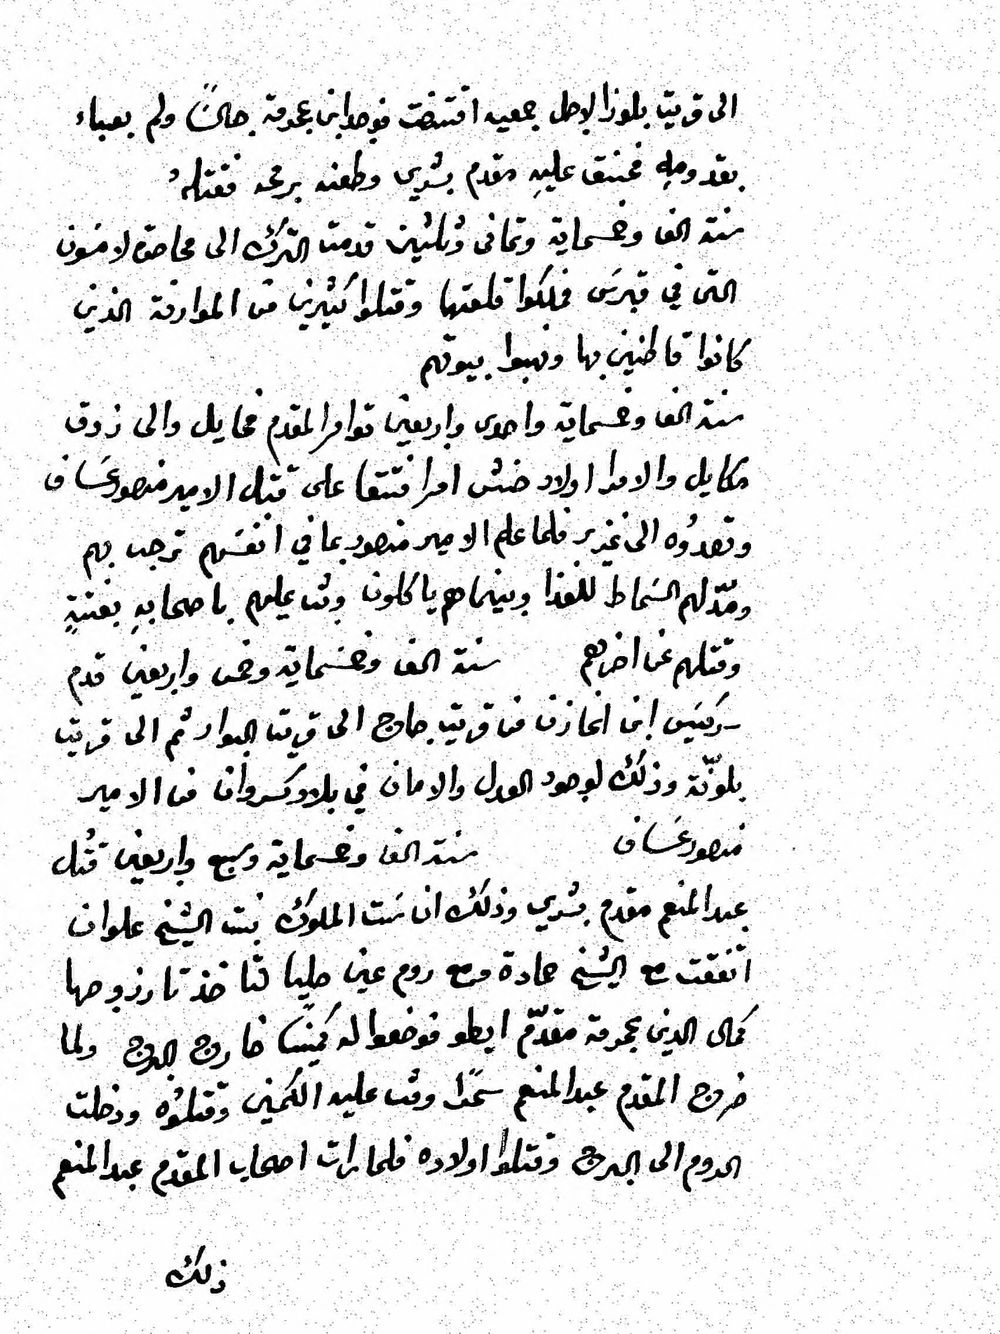 الى قرية بلوزا لاجل جمعيه اقتضت فوجد ابن عجرمة جالسًا ولم يعباء
بقدومهِ فحنق عليهِ مقدم بشري وطعنه برمحه فقتلهُ
سنة الف وخمسماية وثماني وثلثين قدمت الترك الى محاصرة لافسون
التي في قبرس فملكوا قلعتها وقتلوا كثيرين من الموارنة الذين
كانوا قاطنين بها ونهبوا بيوتهم
سنة الف وخمسماية واحدى واربعين توامر المقدم مخايل والى زوق
مكايل والامرا اولاد حنش امرا فتقا على قتل الامير منصور عساف
وقصدوُه الى غزير فلما علم الامير منصور بما في انفسهم ترحب بهم
ومدّ لهم السماط للغذا وبينما هم ياكلون وثب عليهم باصحابهِ بغتةٍ
وقتلهم عن اخرهم سنة الف وخمسماية وخمس واربعين قدم
سركيس ابن الخازن من قرية جاج الى قرية البوار ثم الى قرية
بلونّة وذلك لوجود العدل والامان في بلاد كسروان من الامير
منصور عساف سنة الف وخمسماية وسبع واربعين قُتل
عبد المنعم مقدم بشري وذلك ان ست الملوك بنت الشيخ علوان
اتفقت مع الشيخ حمادة ومع روم عين حليا لتاخذ تار زوجها
كمال الدين عجرمة مقدّم ايطو فوضعوا له كمينًا خارج البرج ولما
خرج المقدم عبد المنعم سحرًا وثب عليه الكمين وقتلوُه ودخلت
الروم الى البرج وقتلوا اولاده فلما رات اصحاب المقدم عبد المنعم
ذلك